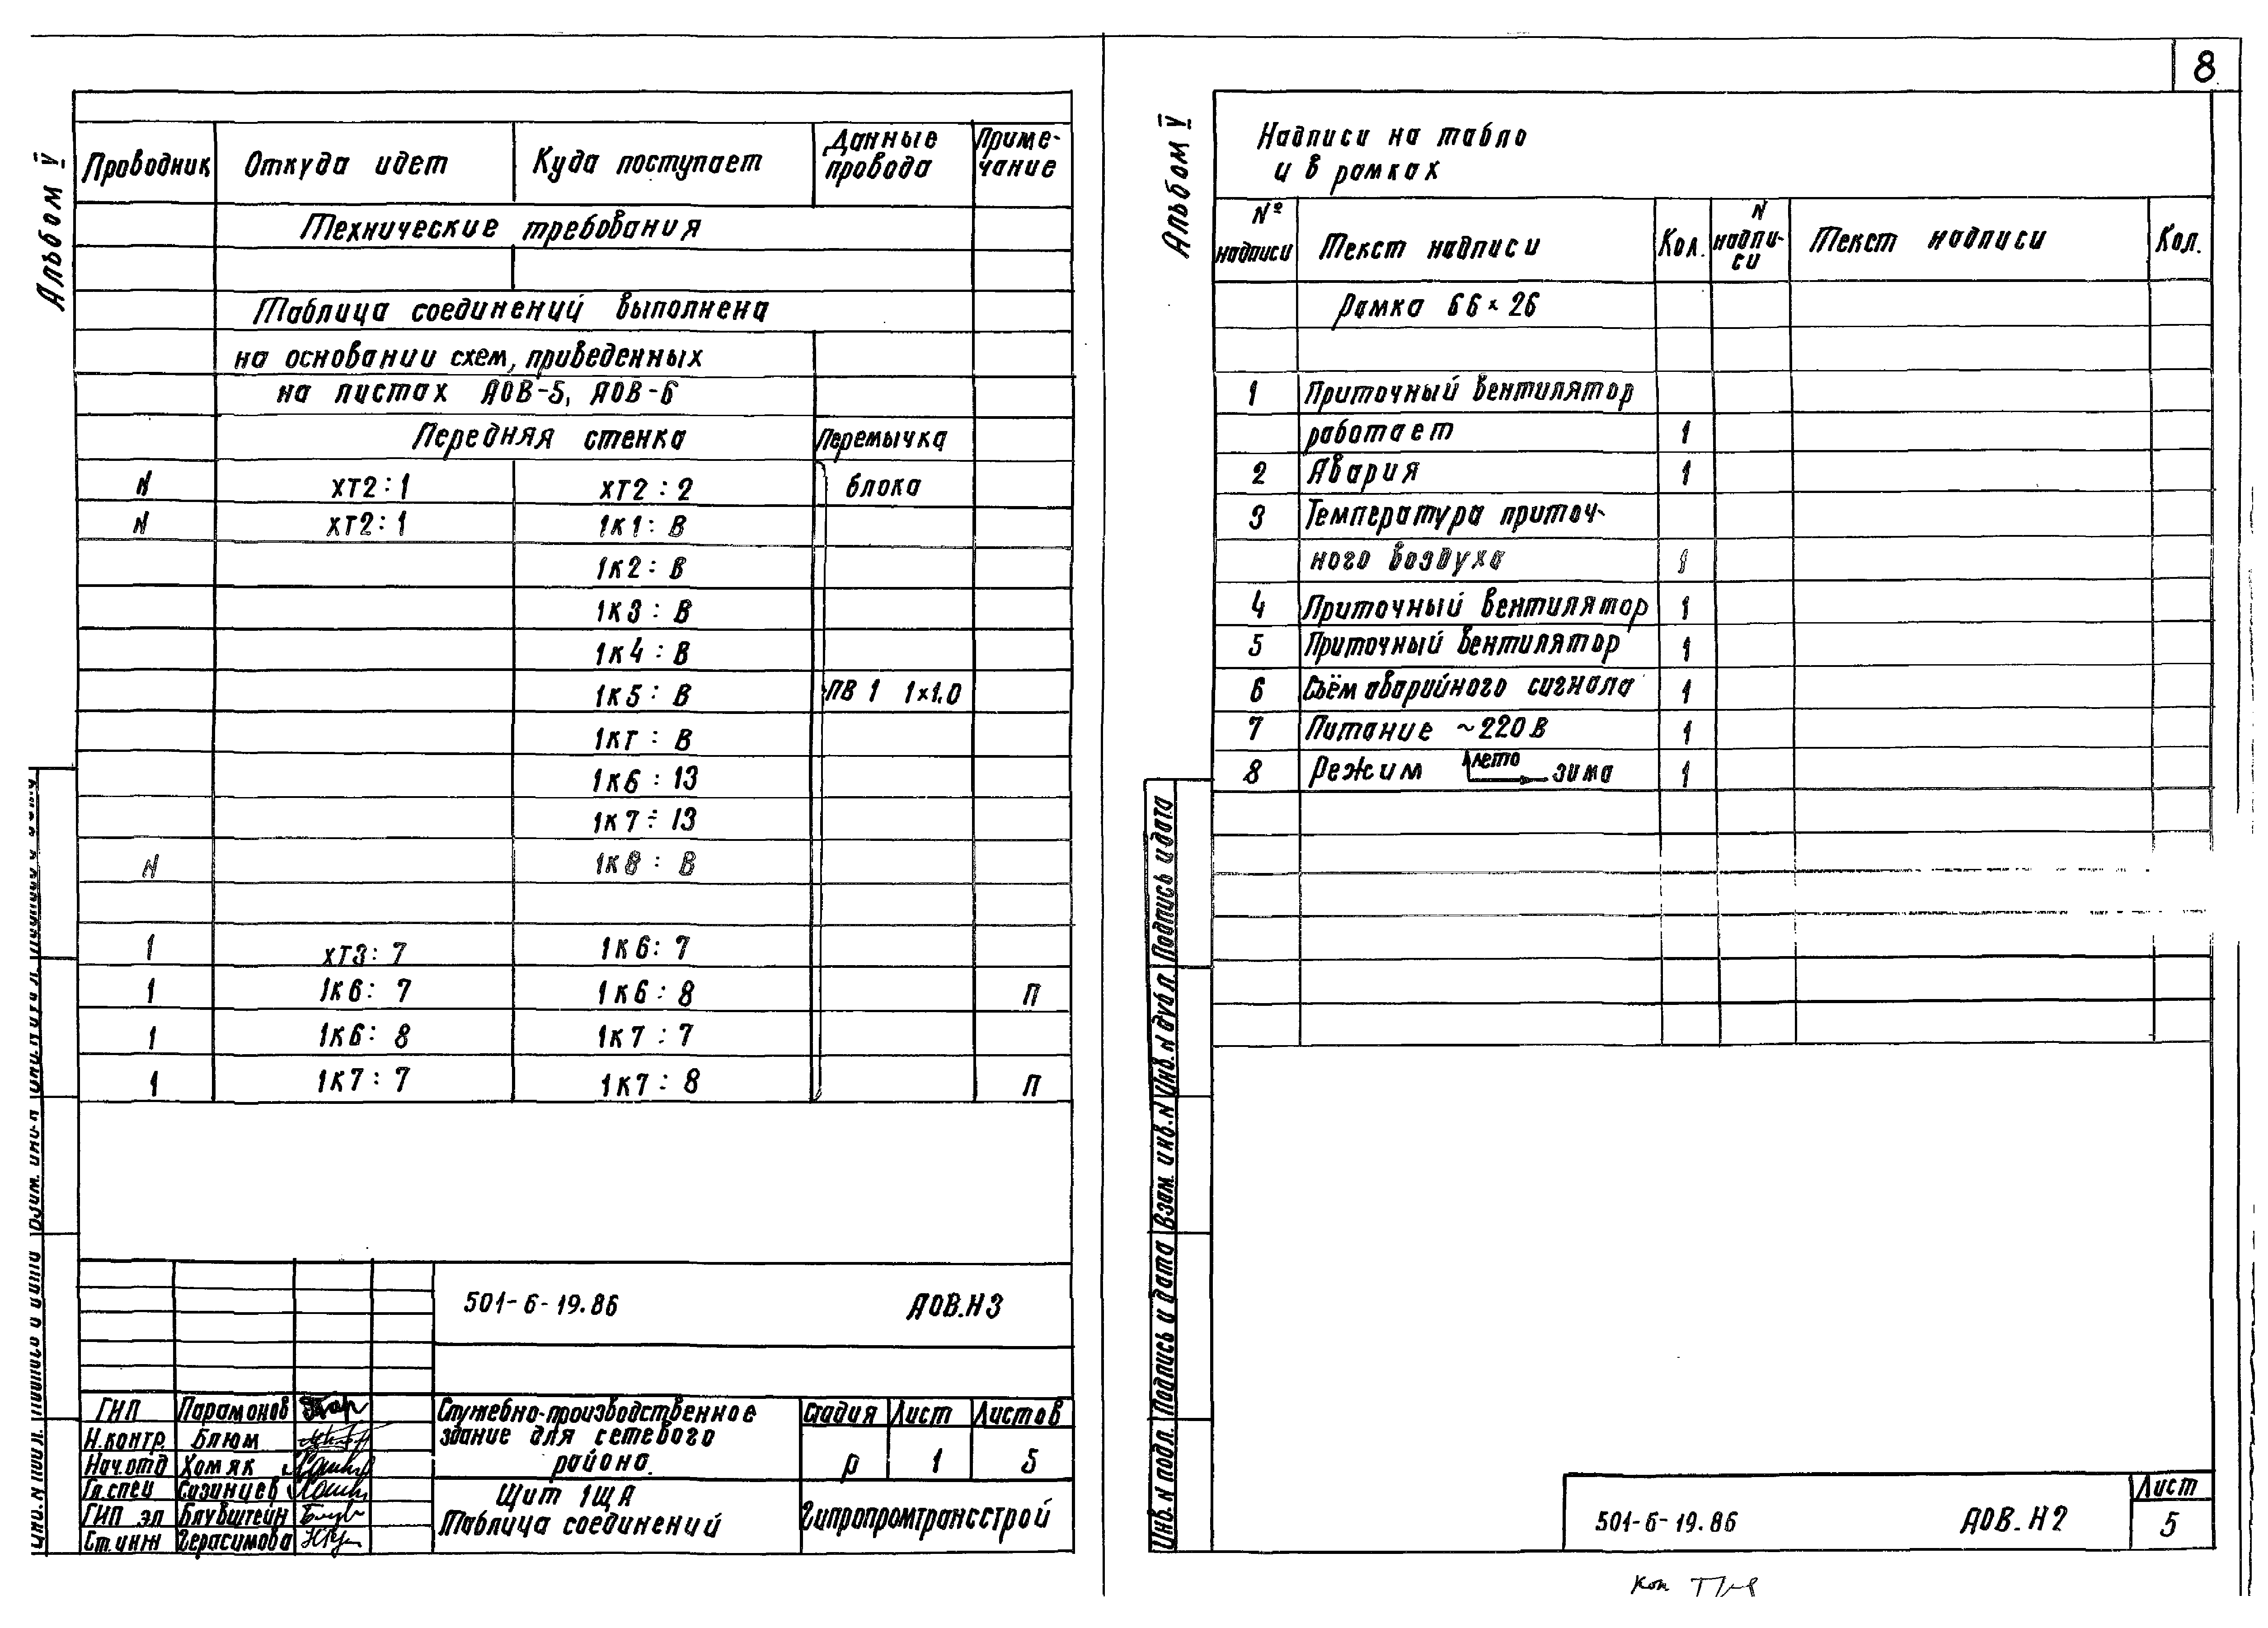 8
Альбом V
Проводник Откуда идет Куда поступает Данные провода Приме-чание
Технические требования
Таблица соединений выполнена
на основании схем, приведенных
на листах АОВ-5, АОВ-6
Передняя стенка Перемычка
N ХТ2:1 ХТ2:2 блока
N ХТ2:1 1К1:В
1К2:В
1К3:В
1К4:В
1К5:В ПВ 1 1×1.0
1КТ:В
1К6:13
1К7:13
N 1К8:В
1 ХТ3:7 1К6:7
1 1К6:7 1К6:8 П
1 1К6:8 1К7:7
1 1К7:7 1К7:8 П
501-6-19.86 АОВ.Н3
ГИП Парамонов
Н.контр. Блюм
Нач.отд Хомяк
Гл.спец Сизинцев
ГИП эл Блувштейн
Ст.инж Герасимова
Служебно-производственное
здание для сетевого
района.
Стадия Лист Листов
р 1 5
Щит 1ЩА
Таблица соединений
Гипропромтрансстрой
Альбом V
Надписи на табло
и в рамках
№ надписи Текст надписи Кол. N надпи-си Текст надписи Кол.
Рамка 66×26
1 Приточный вентилятор
работает 1
2 Авария 1
3 Температура приточ-
ного воздуха 1
4 Приточный вентилятор 1
5 Приточный вентилятор 1
6 Съём аварийного сигнала 1
7 Питание ~220В 1
8 Режим лето зима 1
Инв.N подл. Подпись и дата Взам. инв.N Инв.N дубл. Подпись и дата
501-6-19.86 АОВ.Н2
Лист
5
Коп.